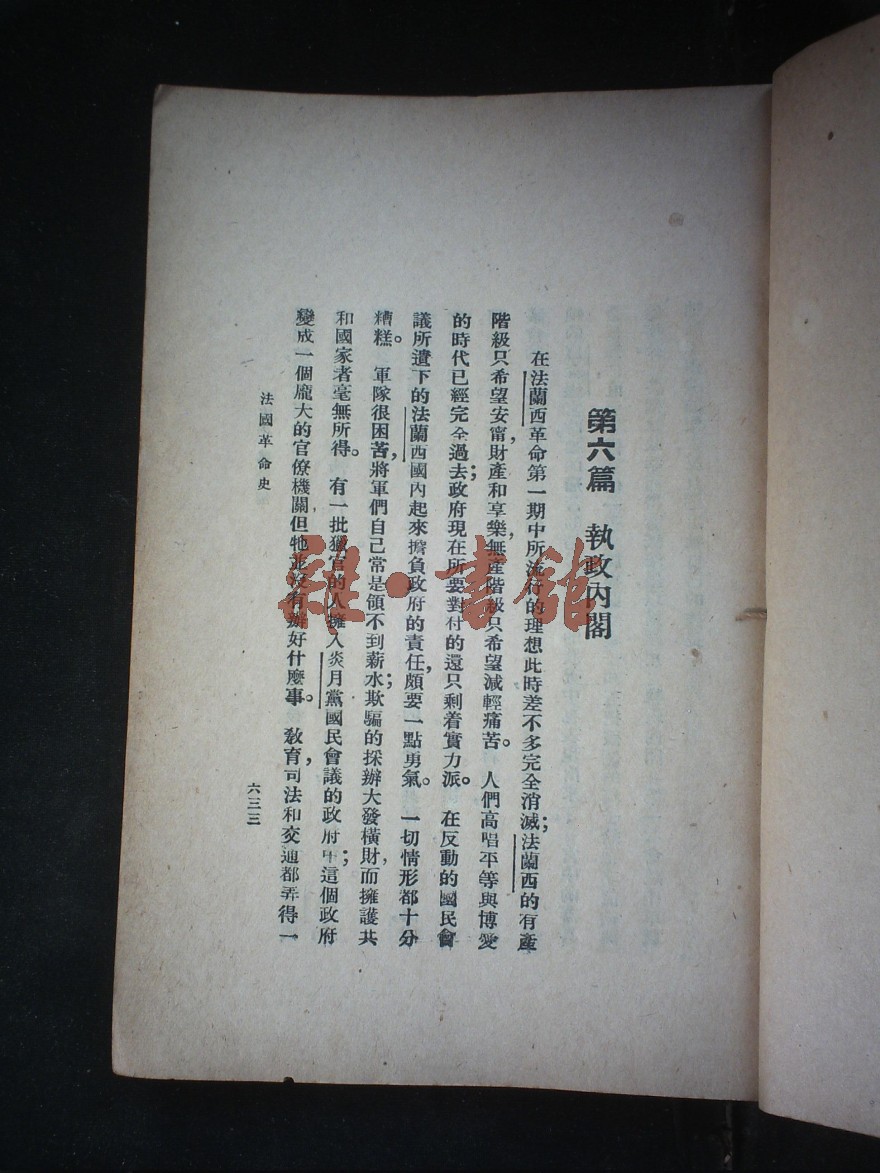 第六篇　執政內閣
在法蘭西革命第一期中所流行的理想此時差不多完全消滅；法蘭西的有產
階級只希望安甯，財產和享樂，無產階級只希望減輕痛苦。人們高唱平等與博愛
的時代已經完全過去；政府現在所要對付的還只剩着實力派。在反動的國民會
議所遺下的法蘭西國內起來擔負政府的責任，頗要一點勇氣。一切情形都十分
糟糕。軍隊很困苦，將軍們自己常是領不到薪水；欺騙的採辦大發橫財，而擁護共
和國家者毫無所得。有一批獵官的人擁入炎月黨國民會議的政府中；這個政府
變成一個龐大的官僚機關，但牠並沒有辦好什麼事。教育，司法和交通都弄得一
法國革命史
六三三
雜·書館